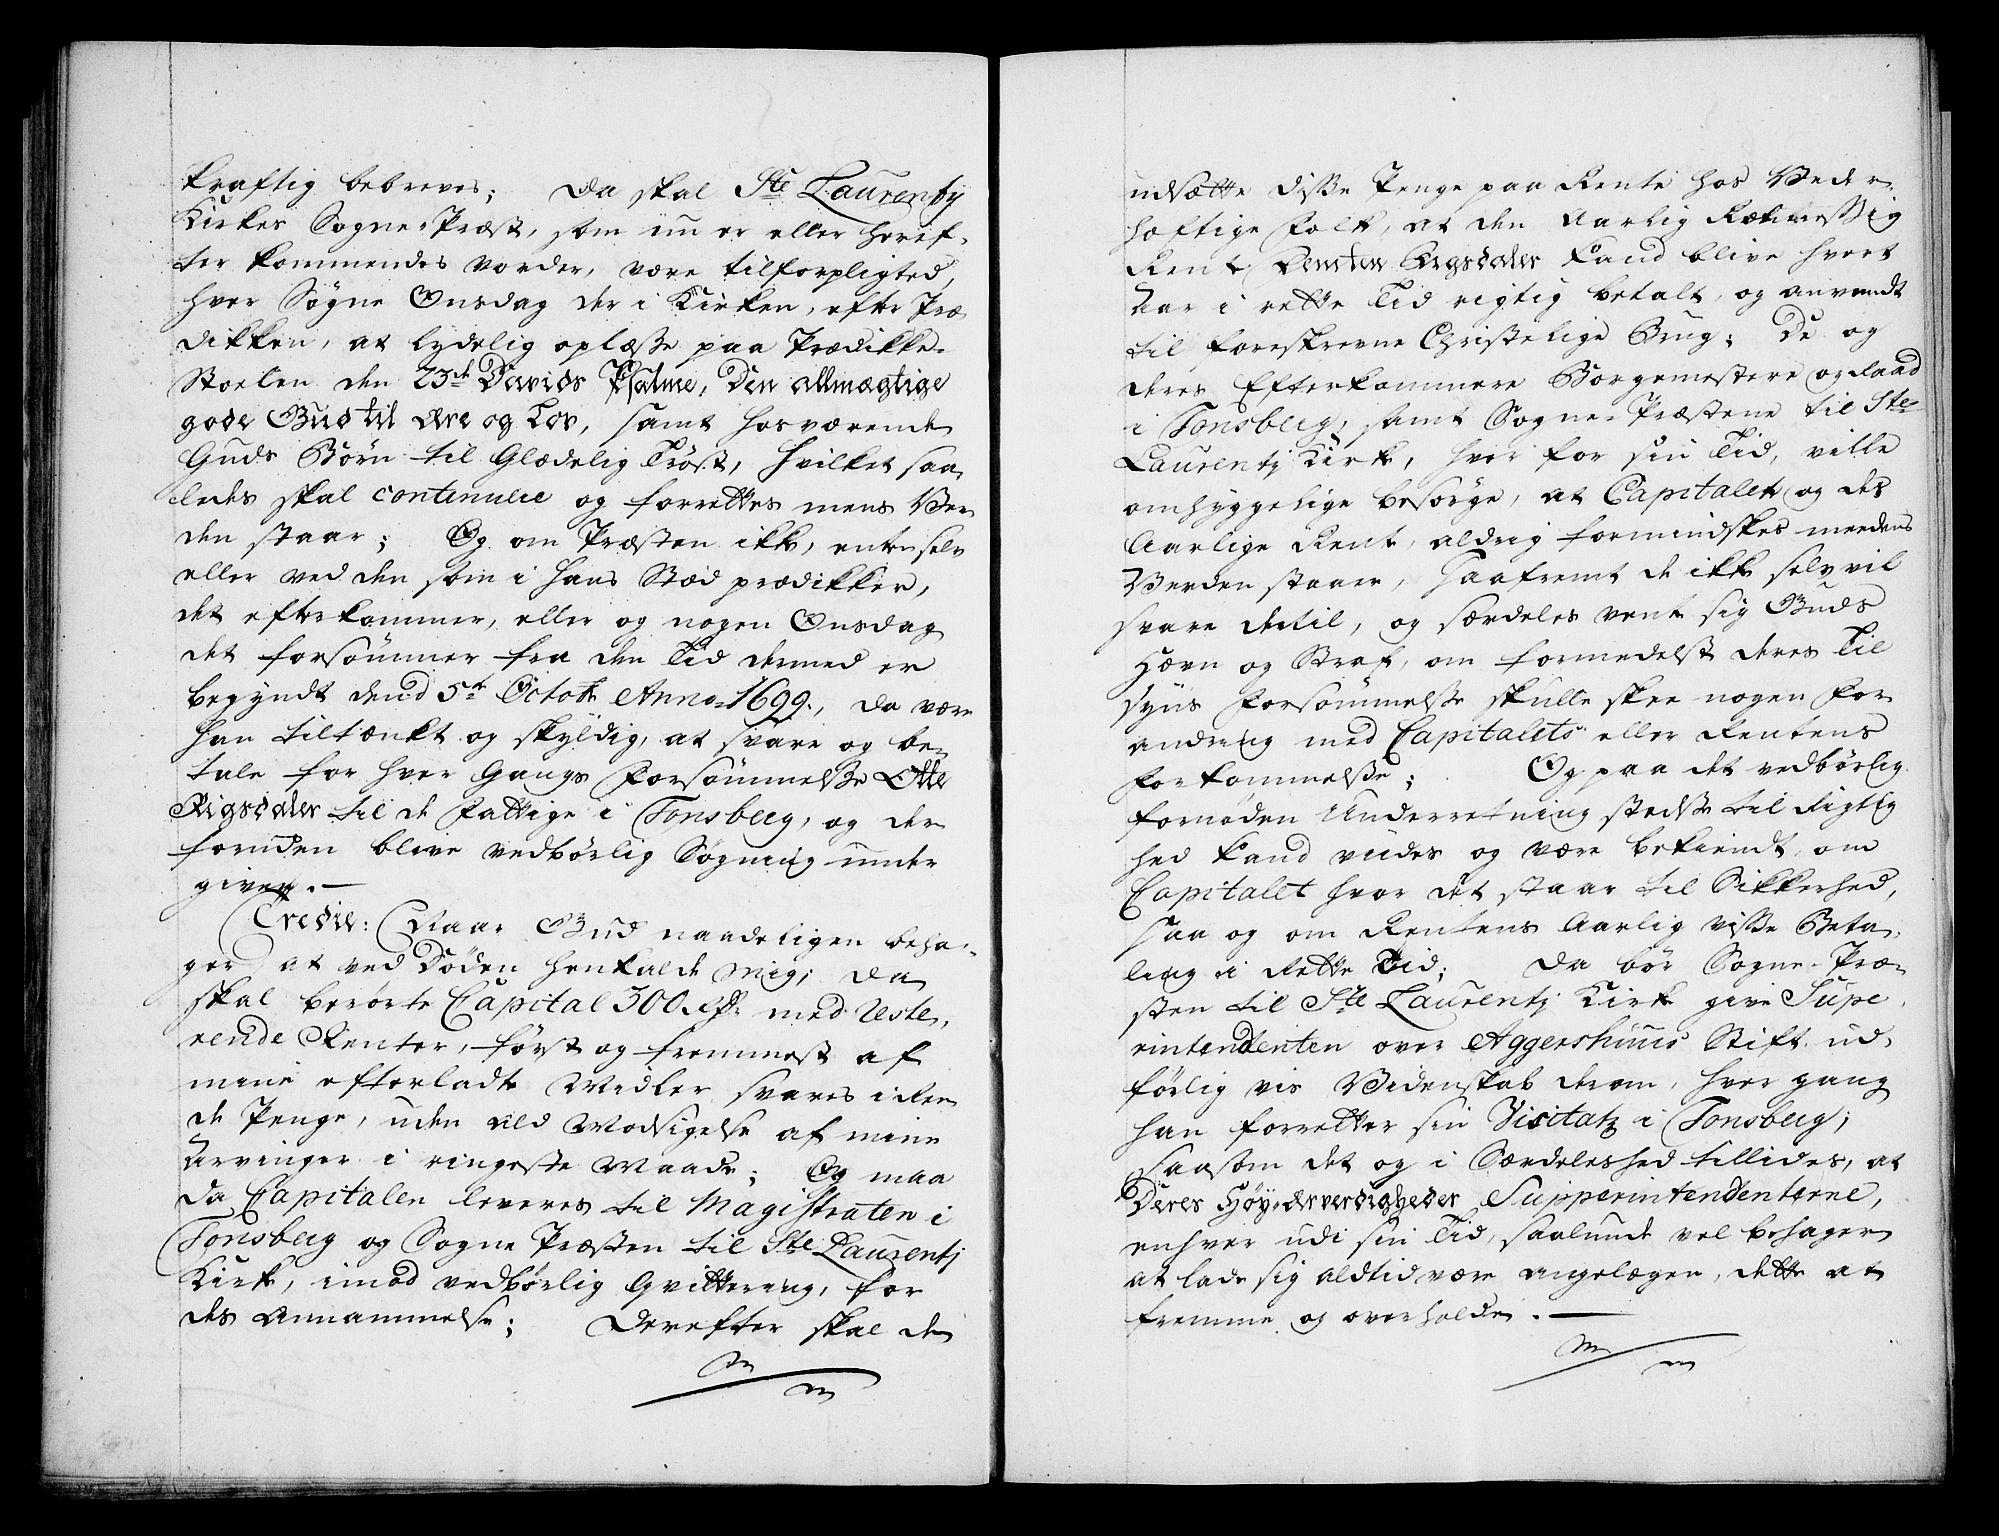 kraftig bebreves; Da skal Ste Laurentij
Kirkes Sogne-Præst, som nu er eller heref-
ter kommendes vorder, være tilforpligted,
hver Søgne Onsdag der i Kirken, efter Præ-
dikken, at lydelig oplæsse paa Prædikke-
Stoelen den 23de Davids Psalme, Den allmægtige
gode Gud til ære og Lov, samt hosværende
Guds Børn til Glædelig Trøst, hvilket saa-
ledes skal continuere og forrettes mens Ver-
den staar; Og om Præsten ikke, enten selv
eller ved den som i hans Stæd prædikker,
det efterkommer, eller og nogen Onsdag
det forsømmer fra den Tid dermed er
begyndt dend 5te Octobr Anno 1699., da være
han tiltænkt og skyldig, at svare og be-
tale for hver Gangs Forsømmelsse Otte
Rigsdaler til de Fattige i Tonsberg, og der-
foruden blive vedbørlig Søgning under
given.—
Tredie: Naar Gud naadeligen beha-
ger at ved Døden henkalde mig; da
skal berørte Capital 300 Rdr med Reste-
rende Renter, først og fremmest af
mine efterladte Midler svares i Ree-
de Penge, uden ald Modsigelse af mine
Arvinger i ringeste Maade; Og maa
da Capitalen leveres til Magistraten i
Tonsberg og Sogne Præsten til Ste Laurentj
Kirke, imod vedbørlig Qvittering, for
des Annammelse; Derefter skal de
udsætte disse Penge paa Rente hos Veder-
hæftige Folk, at den Aarlig
Rente, Femten Rigsdaler kand blive hvert
Aar i rette Tid rigtig betalt, og anvendt
til foreskrevne Christelige Brug; De og
deres Efterkommere Borgemestere og Raad
i Tonsberg, samt Sogne-Præstene til Ste
Laurentj Kirke, hver for sin Tid, ville
omhyggelige besørge, at Capitalen og des
Aarlige Rente, aldrig formindskes meedens
Verden staaer, saafremt de ikke selv vil
svare dertil, og særdeles vente sig Guds
Hævn og Straf, om formedelst deres Til
syns Forsømmelsse skulle skee nogen For
andring med Capitalets eller Rentens
Forkommelsse; Og paa det vedbørlig
fornøden Underretning stedse til Rigtig
hed kand viides og være bekiendt om
Capitalet hvor det staar til Sikkerhed,
saa og om Rentens Aarlig visse Beta-
ling i Rette Tid; Da bør Sogne-Præ-
sten til Ste Laurentj Kirke give Supe-
rintendenten over Aggershuus Stift ud-
førlig vis Videnskab derom, hver gang
han forretter sin Visitatz i Tonsberg;
saasom det og i Særdeleshed tillides, at
Deres Høy-ærværdigheder Supperintendenterne,
enhver udi sin Tid, saalunde vel behager
at lade sig aldtid være angelægen, dette at
fremme og overholde.—